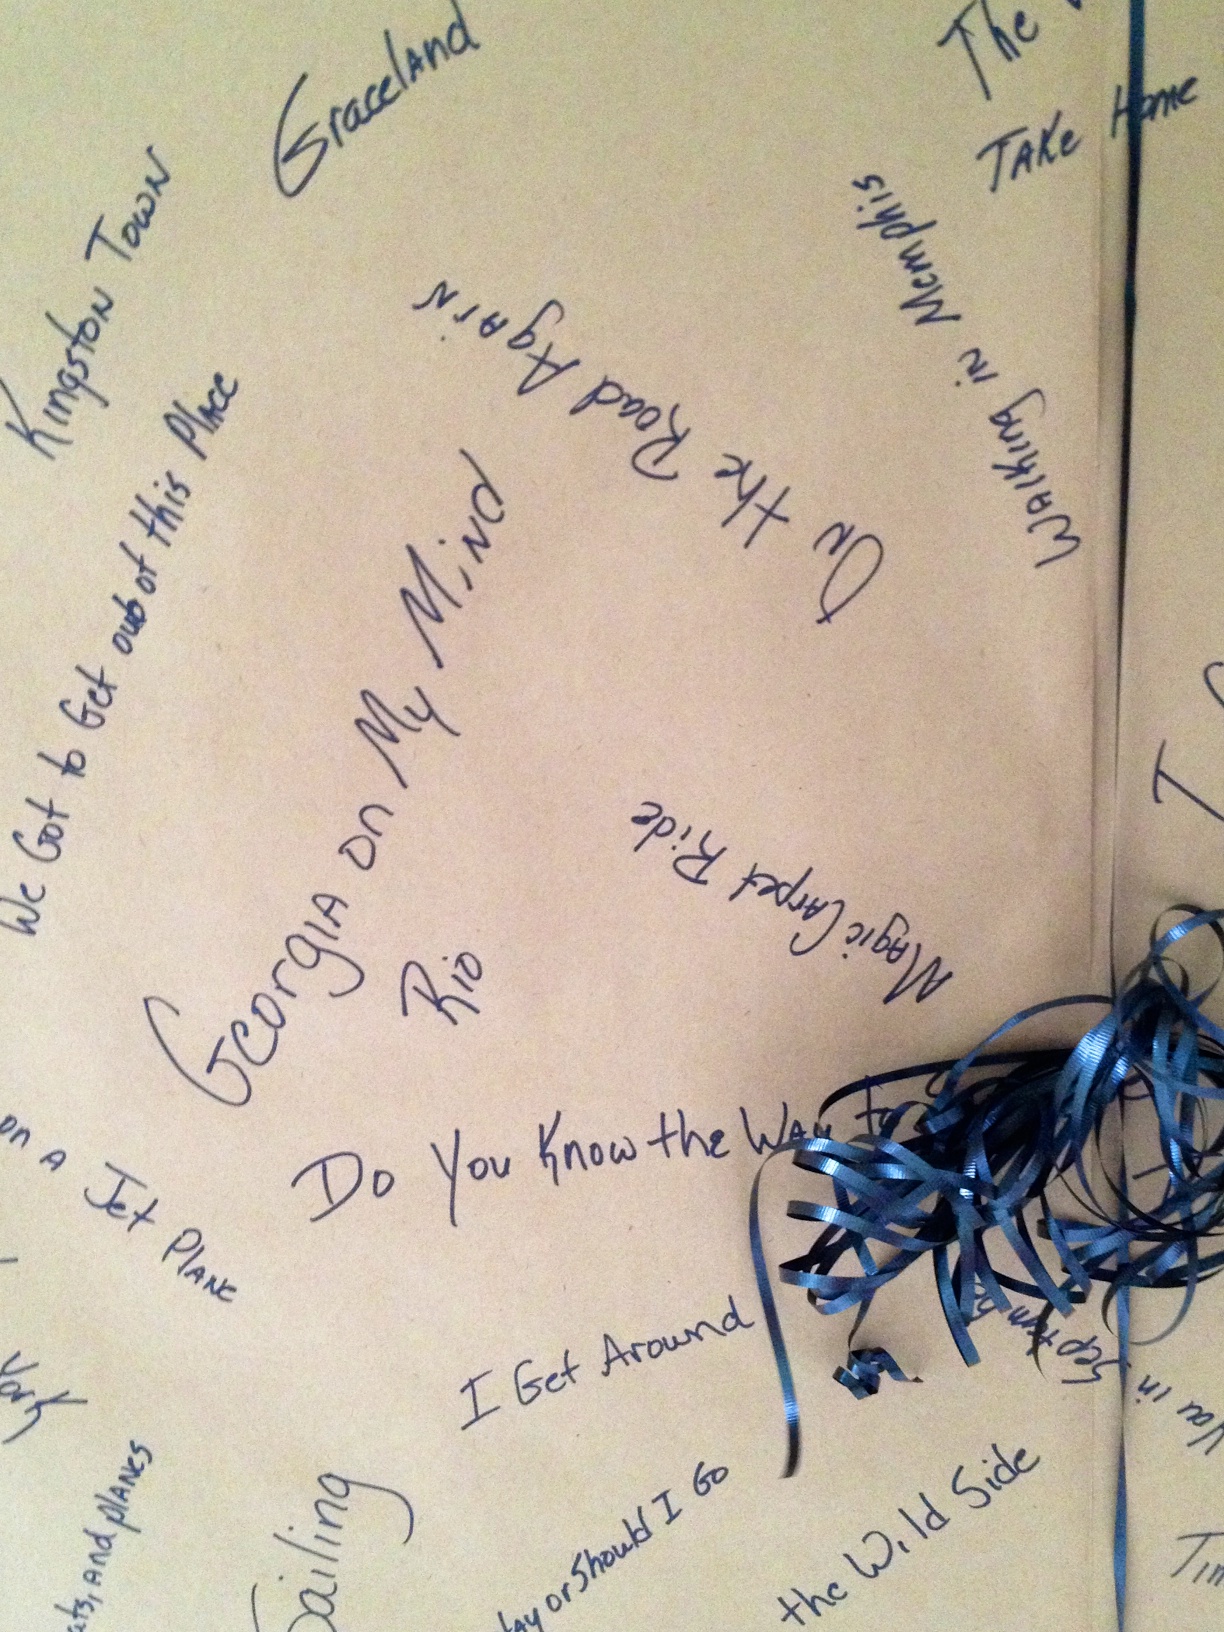 Graceland
The
Take Home
Kingston Town
Walking in Memphis
On the Road Again
We Got to Get out of this Place
Georgia on My Mind
Magic Carpet Ride
Rio
Do You Know the Way to
on a Jet Plane
I Get Around
You in Septem
York
and planes
Sailing
or Should I Go
the Wild Side